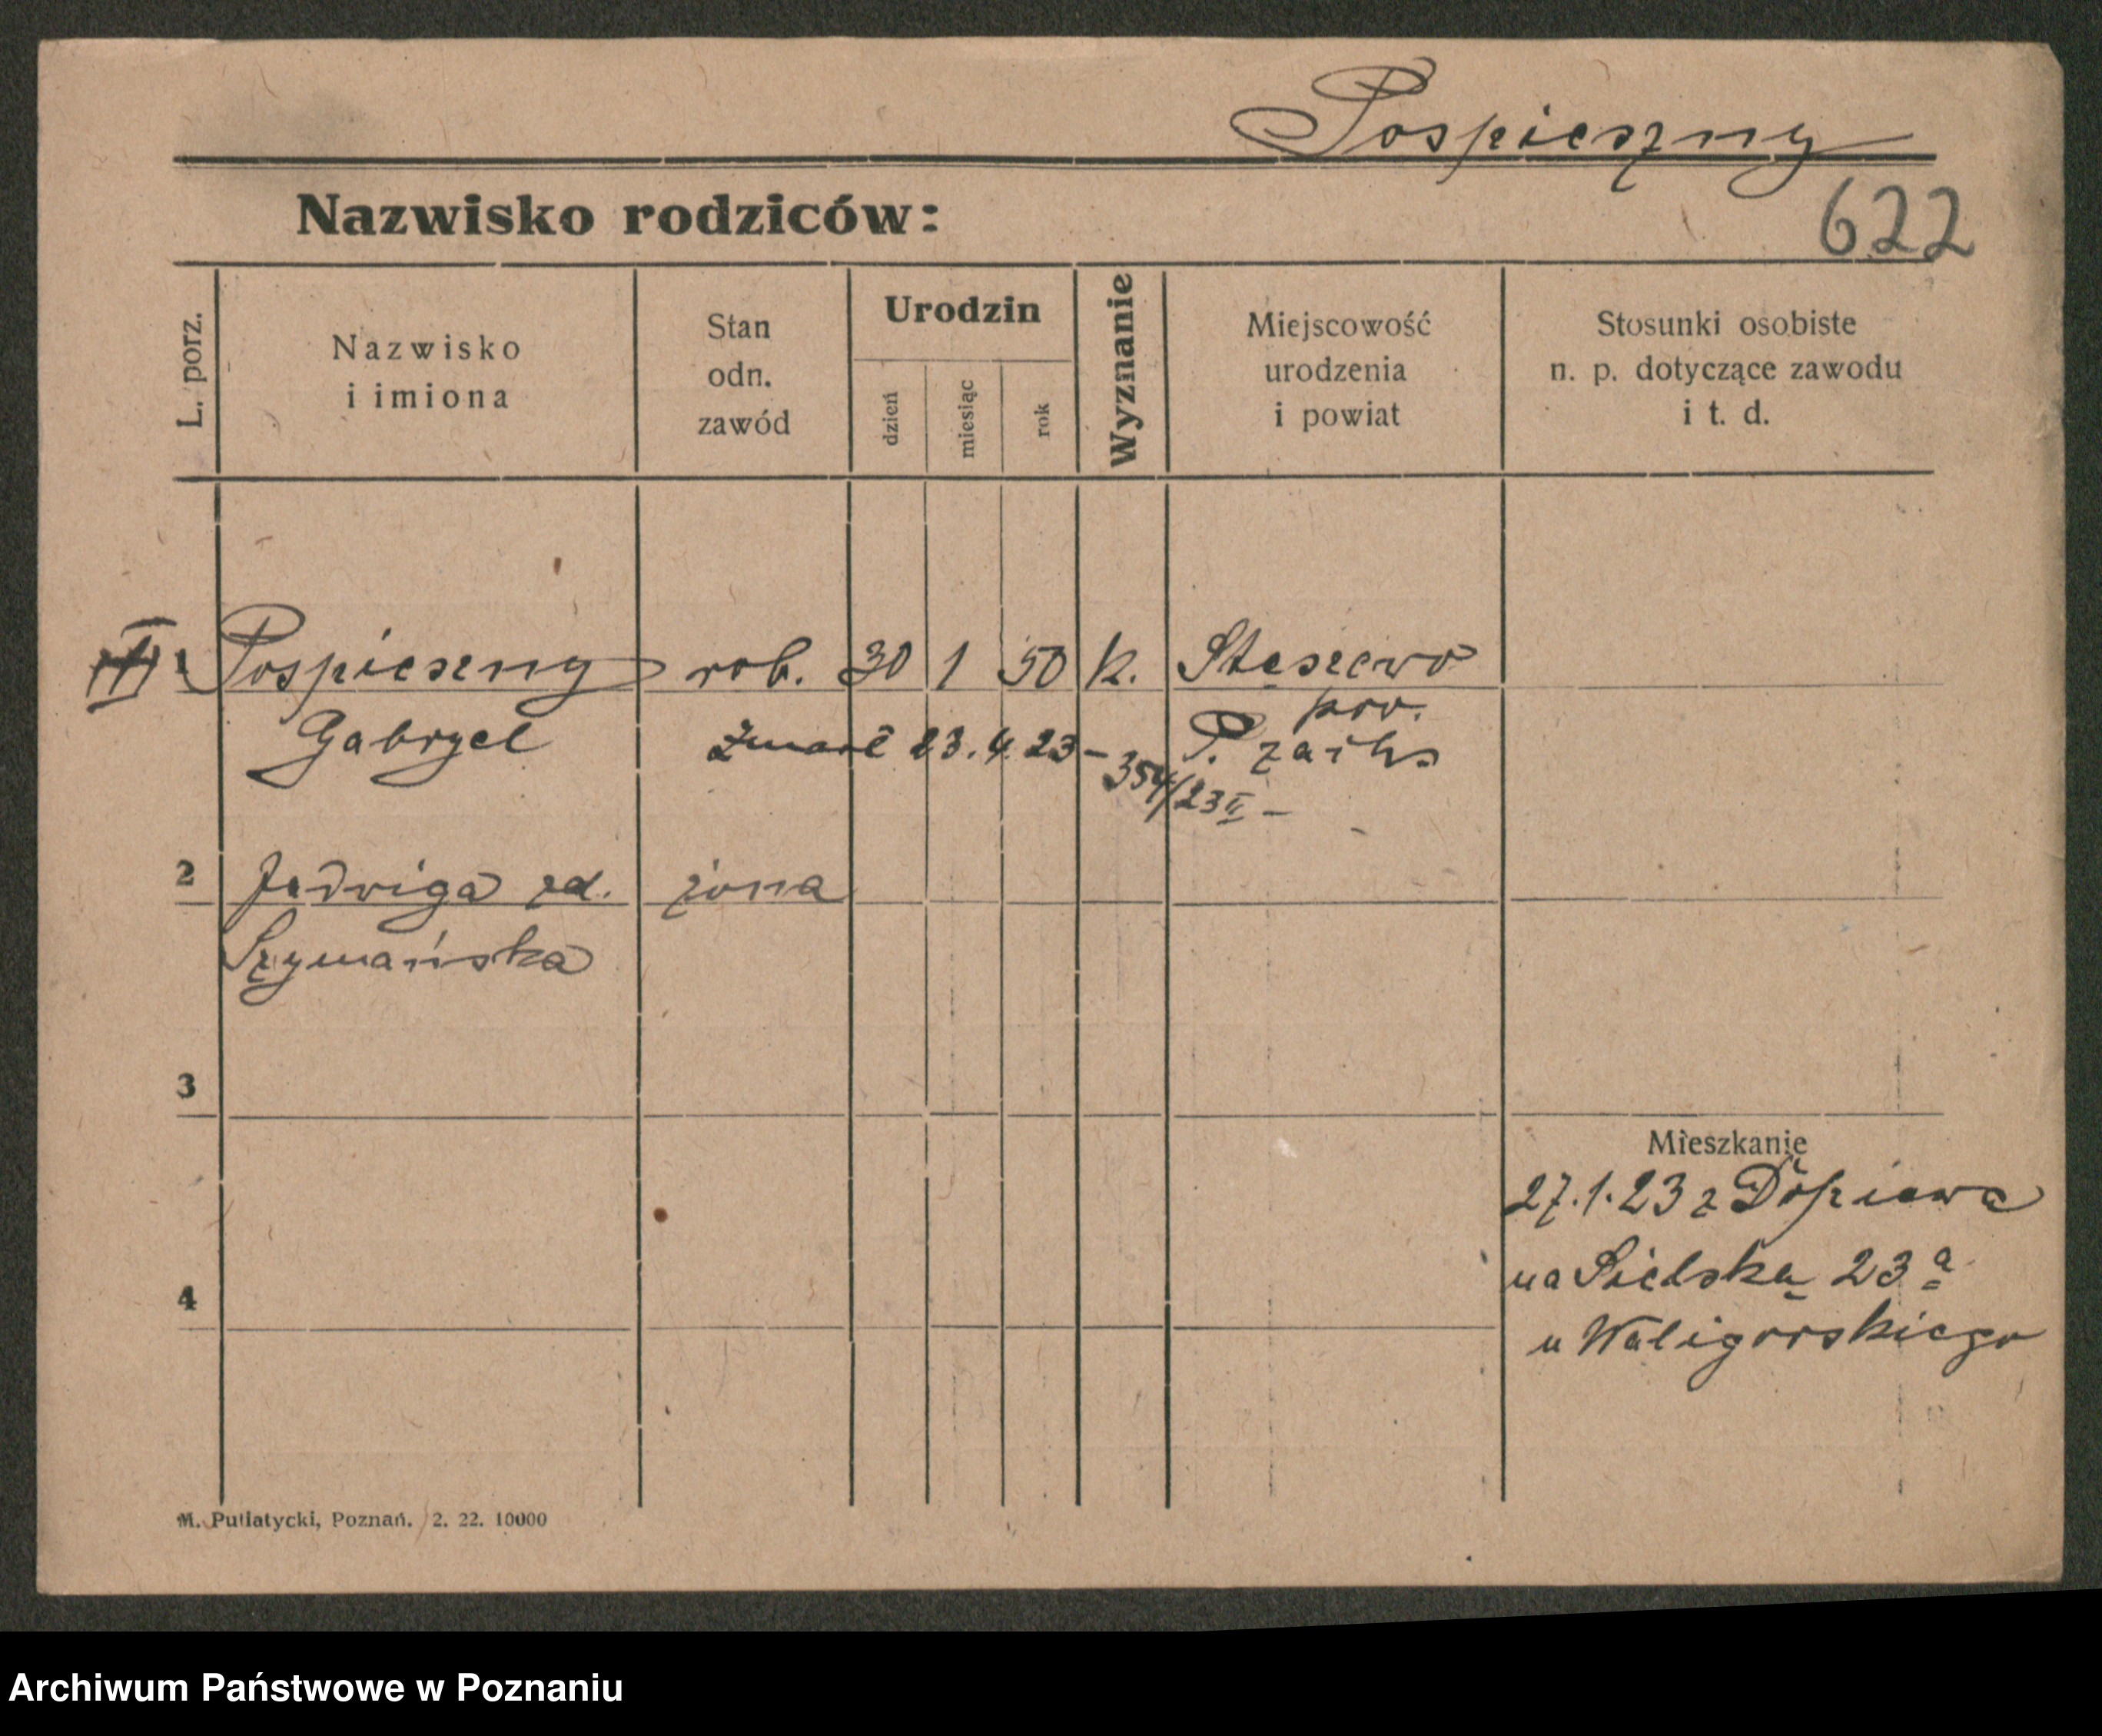 Pospieszny
Nazwisko rodziców:
622
L. porz.
Nazwisko
i imiona
Stan
odn.
zawód
Urodzin
dzień
miesiąc
rok
Wyznanie
Miejscowość
urodzenia
i powiat
Stosunki osobiste
n. p. dotyczące zawodu
i t. d.
1 Pospieszny rob. 30 1 50 k. Stęszewo
Gabryel
pow.
P. zach.
zmarł 23.4.23 –
354/23 II –
2 Jadwiga zd. żona
Szymańska
3
4
Mieszkanie
27.1.23 z Dopiewa
na Sielską 23a
u Waligórskiego
M. Putiatycki, Poznań. 2. 22. 10000
Archiwum Państwowe w Poznaniu